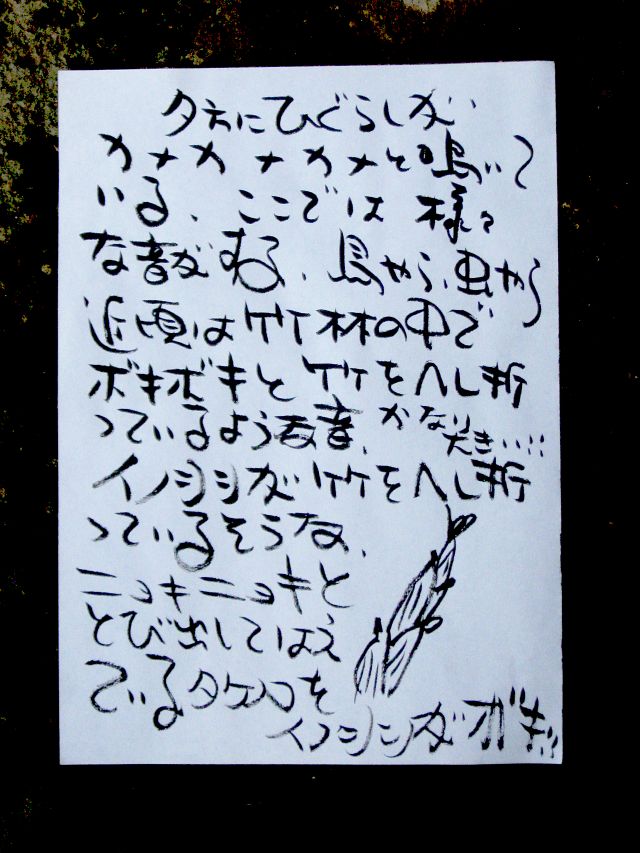 夕方にひぐらしが
カナカナカナと鳴いて
いる、ここでは様々
な音がする、鳥やら、虫やら
近頃は竹林の中で
ボキボキと竹をヘし折
っているような音、かなり大きい!!
イノシシが竹をヘし折
っているそうな、
ニョキニョキと
とび出してはえ
でいるタケノコを
イノシシがボキッ